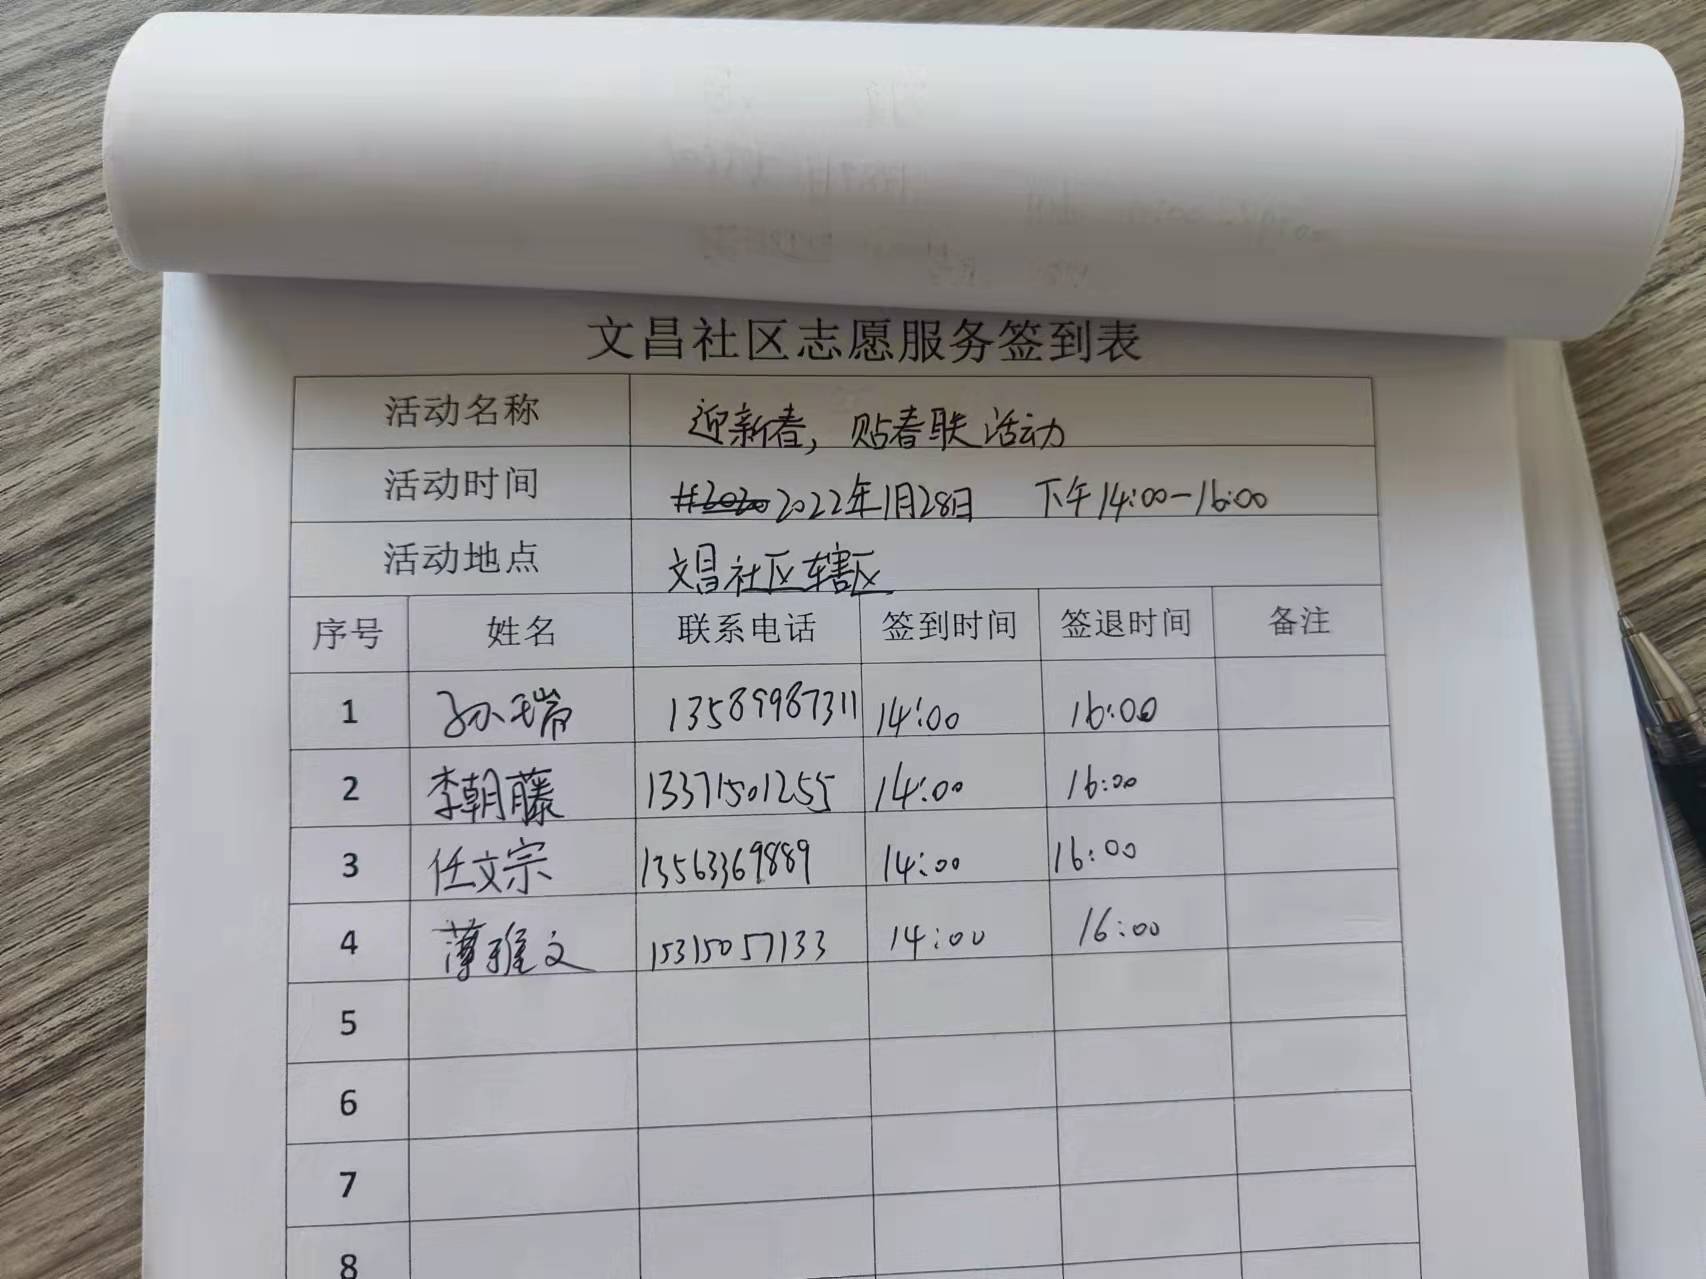 文昌社区志愿服务签到表
活动名称 迎新春，贴春联活动
活动时间 2022年1月28日 下午14:00-16:00
活动地点 文昌社区辖区
序号 姓名 联系电话 签到时间 签退时间 备注
1 孙瑞 13589987311 14:00 16:00
2 李朝藤 13371501255 14:00 16:00
3 任文宗 13563369889 14:00 16:00
4 薄雅文 15315057133 14:00 16:00
5
6
7
8